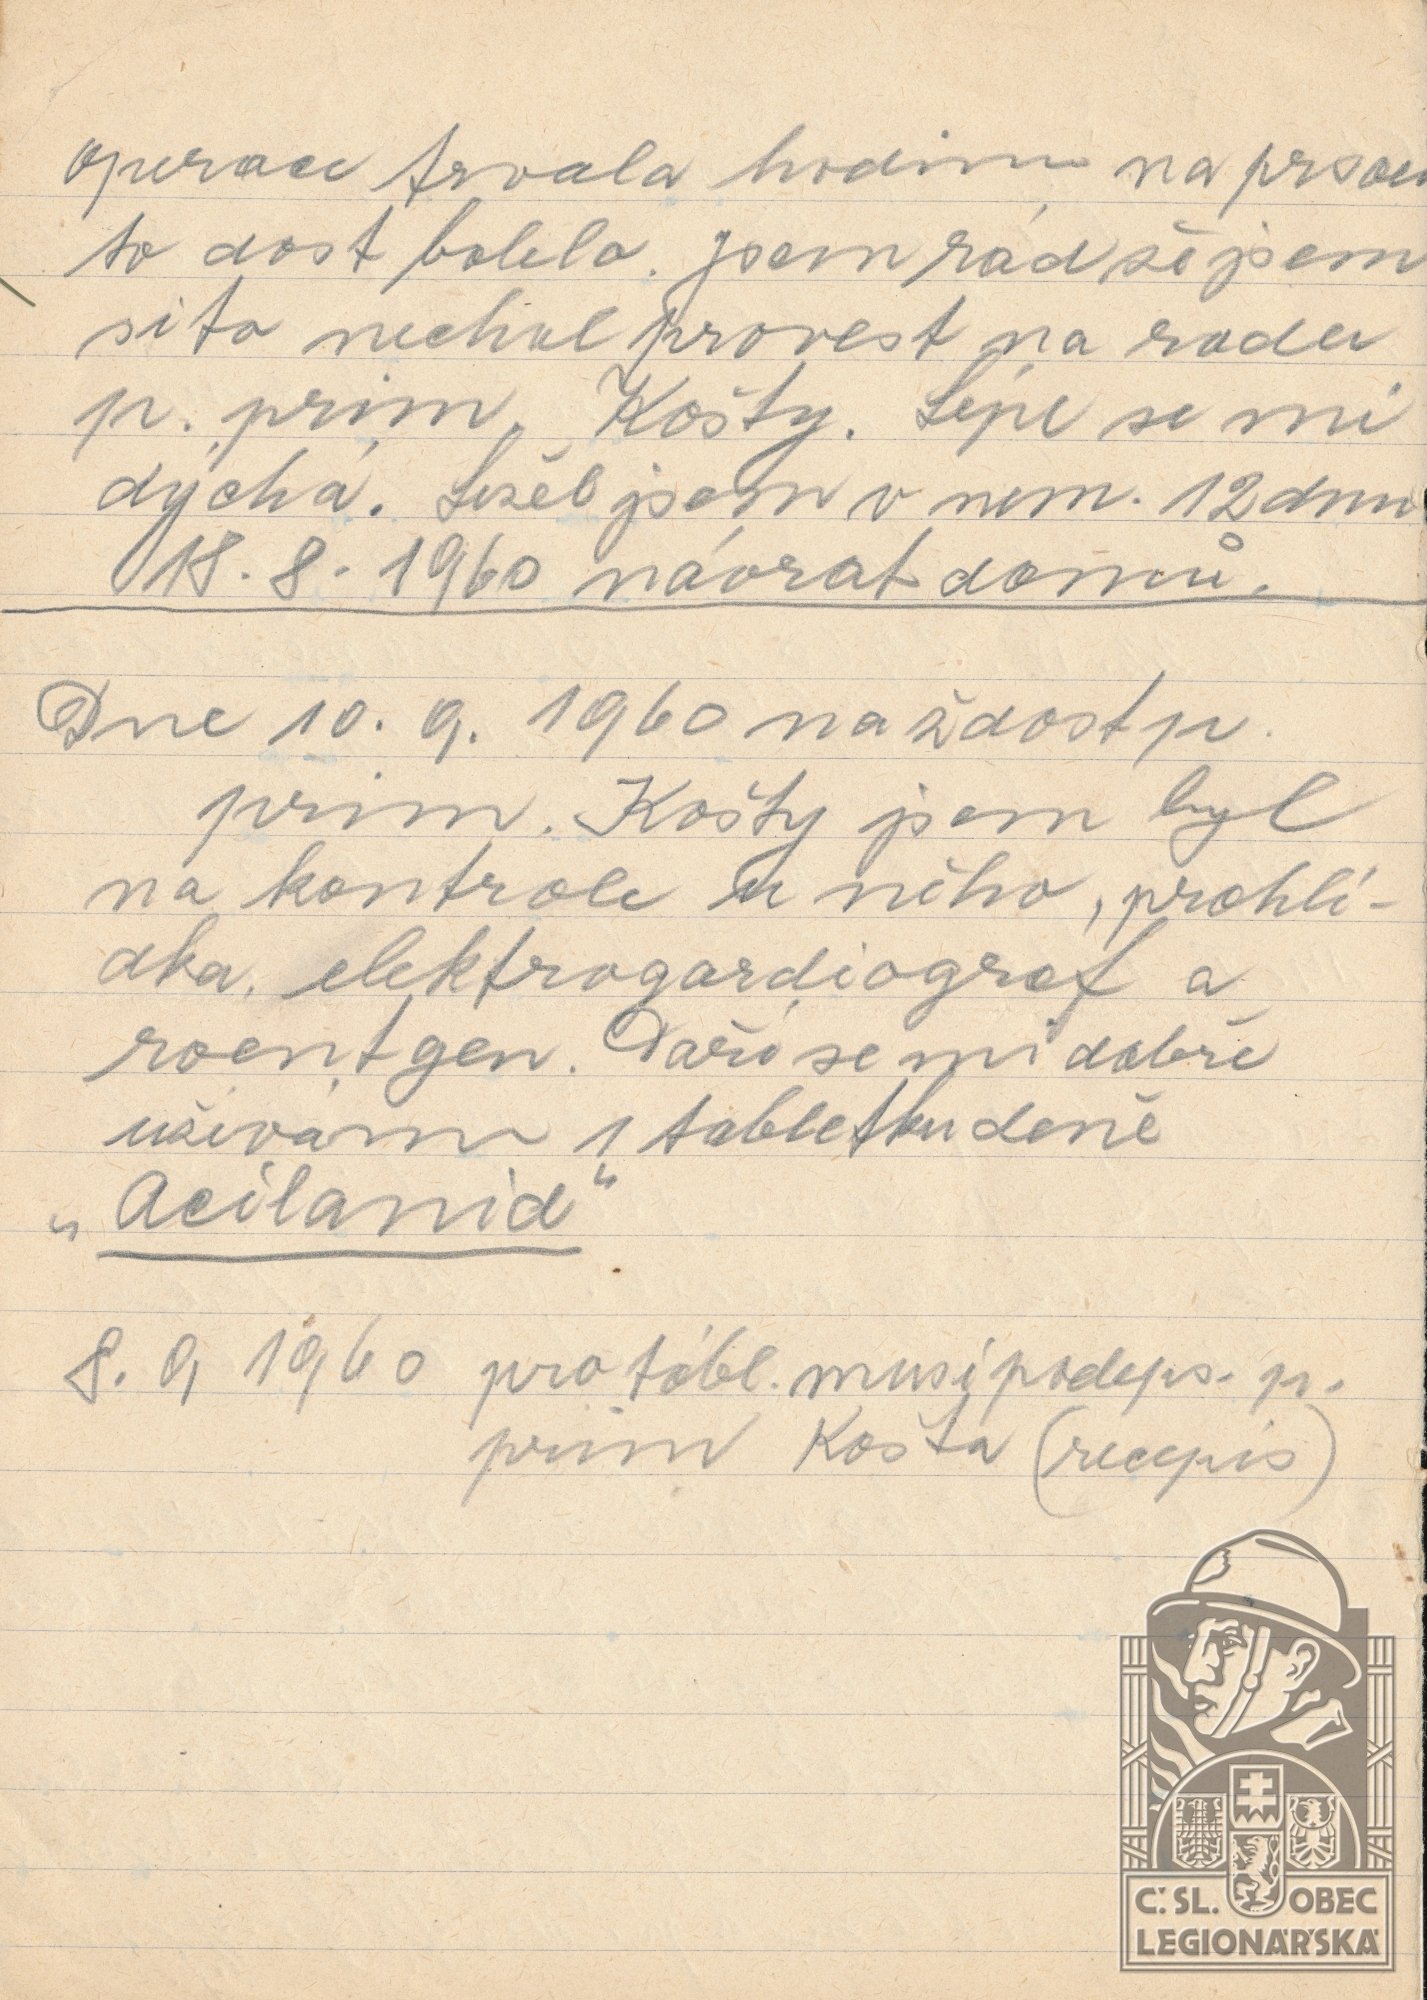 operace trvala hodinu na prsou
to dost bolelo. jsem rád že jsem
si to nechal provest na radu
p. prim. Košty. Lépe se mi
dýchá. Ležel jsem v nem. 12 dnu
18. 8. 1960 návrat domů.
Dne 10. 9. 1960 na ždost p.
prim. Košty jsem byl
na kontrole u něho, prohlí-
dka, elektrogardiograf a
roentgen. Daří se mi dobře
užívám 1 tabletku deně
„Acilanid“
8. 9 1960 pro tabl. musí podeps. p.
prim Košta (recepis)
Č.SL. OBEC
LEGIONÁŘSKÁ